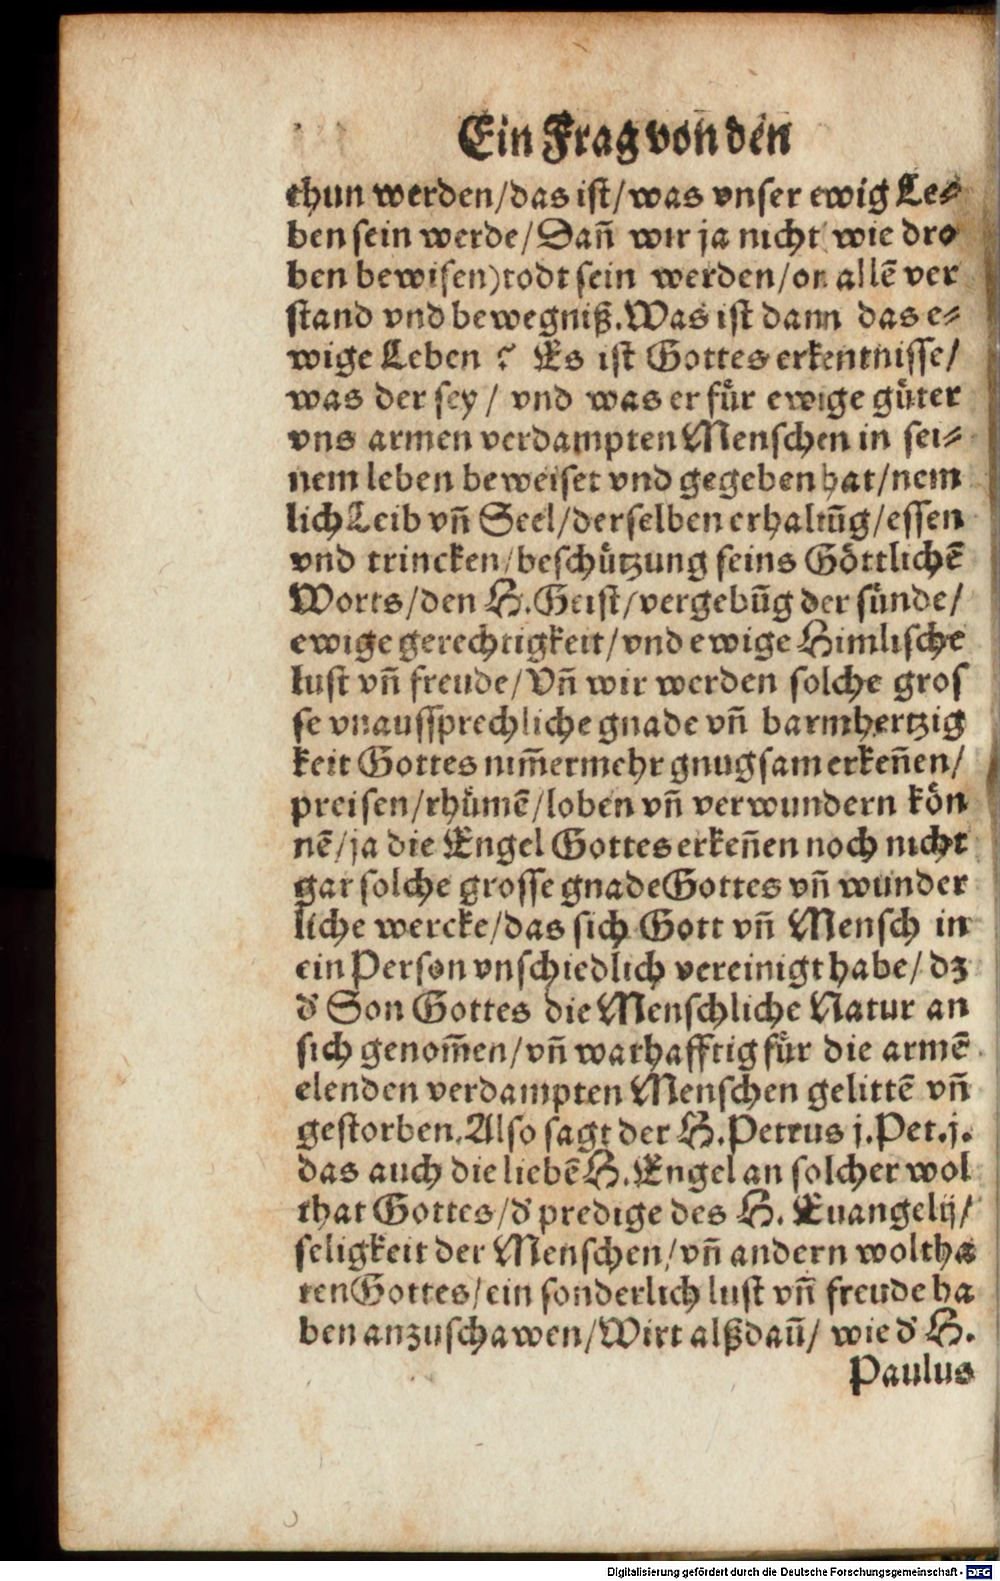 Ein Frag von den
thun werden/das ist/was vnser ewig Le⸗
ben sein werde/Dañ wir ja nicht (wie dro
ben bewisen) todt sein werden/on allẽ ver
stand vnd bewegniß. Was ist dann das e⸗
wige Leben ? Es ist Gottes erkentnisse/
was der sey / vnd was er für ewige güter
vns armen verdampten Menschen in sei⸗
nem leben beweiset vnd gegeben hat/nem
lich Leib vñ Seel/derselben erhaltũg/essen
vnd trincken/beschützung seins Göttlichẽ
Worts/den H. Geist/vergebũg der sünde/
ewige gerechtigkeit/vnd ewige Himlische
lust vñ freude/Vñ wir werden solche gros
se vnaussprechliche gnade vñ barmhertzig
keit Gottes nim̃ermehr gnugsam erkeñen/
preisen/rhümẽ/loben vñ verwundern kön
nẽ/ja die Engel Gottes erkeñen noch nicht
gar solche grosse gnade Gottes vñ wunder
liche wercke/das sich Gott vñ Mensch in
ein Person vnschiedlich vereinigt habe/ dz
d' Son Gottes die Menschliche Natur an
sich genom̃en/vñ warhafftig für die armẽ
elenden verdampten Menschen gelittẽ vñ
gestorben. Also sagt der H. Petrus j. Pet. j.
das auch die liebẽ H. Engel an solcher wol
that Gottes/d' predige des H. Euangelij/
seligkeit der Menschen/vñ andern woltha
ten Gottes/ein sonderlich lust vñ freude ha
ben anzuschawen/Wirt alßdañ/ wie d' H.
Paulus
Digitalisierung gefördert durch die Deutsche Forschungsgemeinschaft - DFG